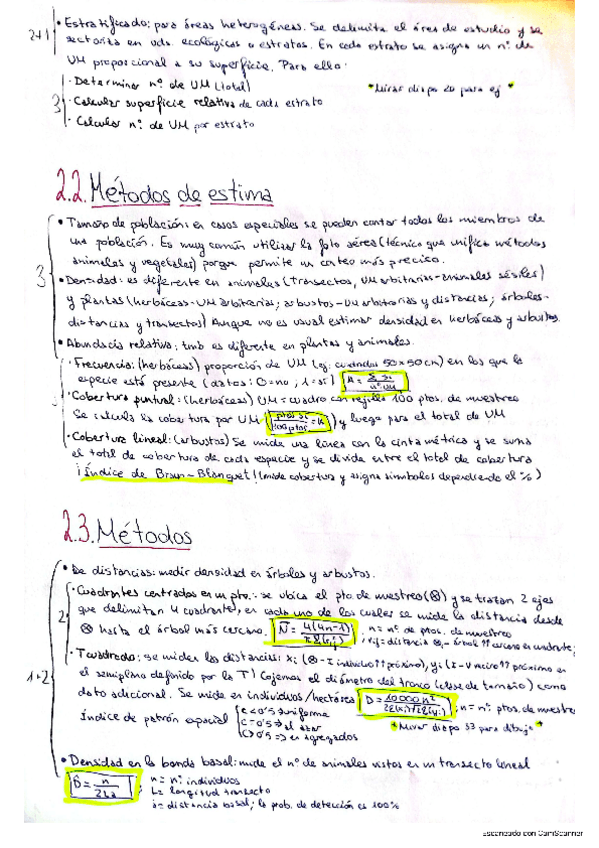 • Estratificado: para áreas heterogéneas. Se delimita el área de estudio y se
2+1
sectoriza en uds. ecológicas o estratos. En cada estrato se asigna un nº de
UM proporcional a su superficie. Para ello:
· Determinar nº de UM (total)
*Mirar diapo 20 para ej *
3
· Calcular superficie relativa de cada estrato
· Calcular nº de UM por estrato
2.2. Métodos de estima
• Tamaño de población: en casos especiales se pueden contar todos los miembros de
una población. Es muy común utilizar la foto aérea (técnica que unifica métodos
animales y vegetales) porque permite un conteo más preciso.
3
• Densidad: es diferente en animales (transectos, UM arbitrarias-animales sésiles)
y plantas (herbáceas-UM arbitrarias; arbustos-UM arbitrarias y distancias; árboles-
distancias y transectos) Aunque no es usual estimar densidad en herbáceas y arbustos.
• Abundacia relativa: tmb es diferente en plantas y animales.
· Frecuencia: (herbáceas) proporción de UM (ej: cuadrados 50x50cm) en los que la
especie está presente (datos: 0=no, 1=sí)
3
· Cobertura puntual: (herbáceas) UM = cuadro con rejilla 100 ptos. de muestreo
Se calcula la cobertura por UM (ptos sí / 100 ptos = A) y luego para el total de UM
· Cobertura lineal: (arbustos) Se mide una línea con la cinta métrica y se suma
el total de cobertura de cada especie y se divide entre el total de cobertura
¡Índice de Braun-Blanquet! (mide cobertura y asigna símbolos dependiendo el %)
2.3. Métodos
• De distancias: medir densidad en árboles y arbustos.
· Cuadrantes centrados en un pto.: se ubica el pto. de muestreo (⊗) y se trazan 2 ejes
que delimitan 4 cuadrantes, en cada uno de los cuales se mide la distancia desde
2
⊗ hasta el árbol más cercano. N = 4(4n-1) / πΣ(rij) , n = nº de ptos. de muestreo
, rij = distancia ⊗i - árbol cercano en cuadrante j
1+2
· T cuadrada: se miden las distancias: xi (⊗ - I individuo próximo), yi (I - Vecino próximo en
el semiplano definido por la T) Cojemos el diámetro del tronco (clase de tamaño) como
dato adicional. Se mide en individuos/hectárea , n = nº ptos. de muestreo
Índice de patrón espacial
C<0'5 ⇒ uniforme
C=0'5 ⇒ al azar
C>0'5 ⇒ en agregados
*Mirar diapo 33 para dibujo*
• Densidad en la banda basal: mide el nº de animales vistos en un transecto lineal
D = n / 2La ; n = nº individuos
L = longitud transecto
a = distancia basal; la prob. de detección es 100%
Escaneado con CamScanner